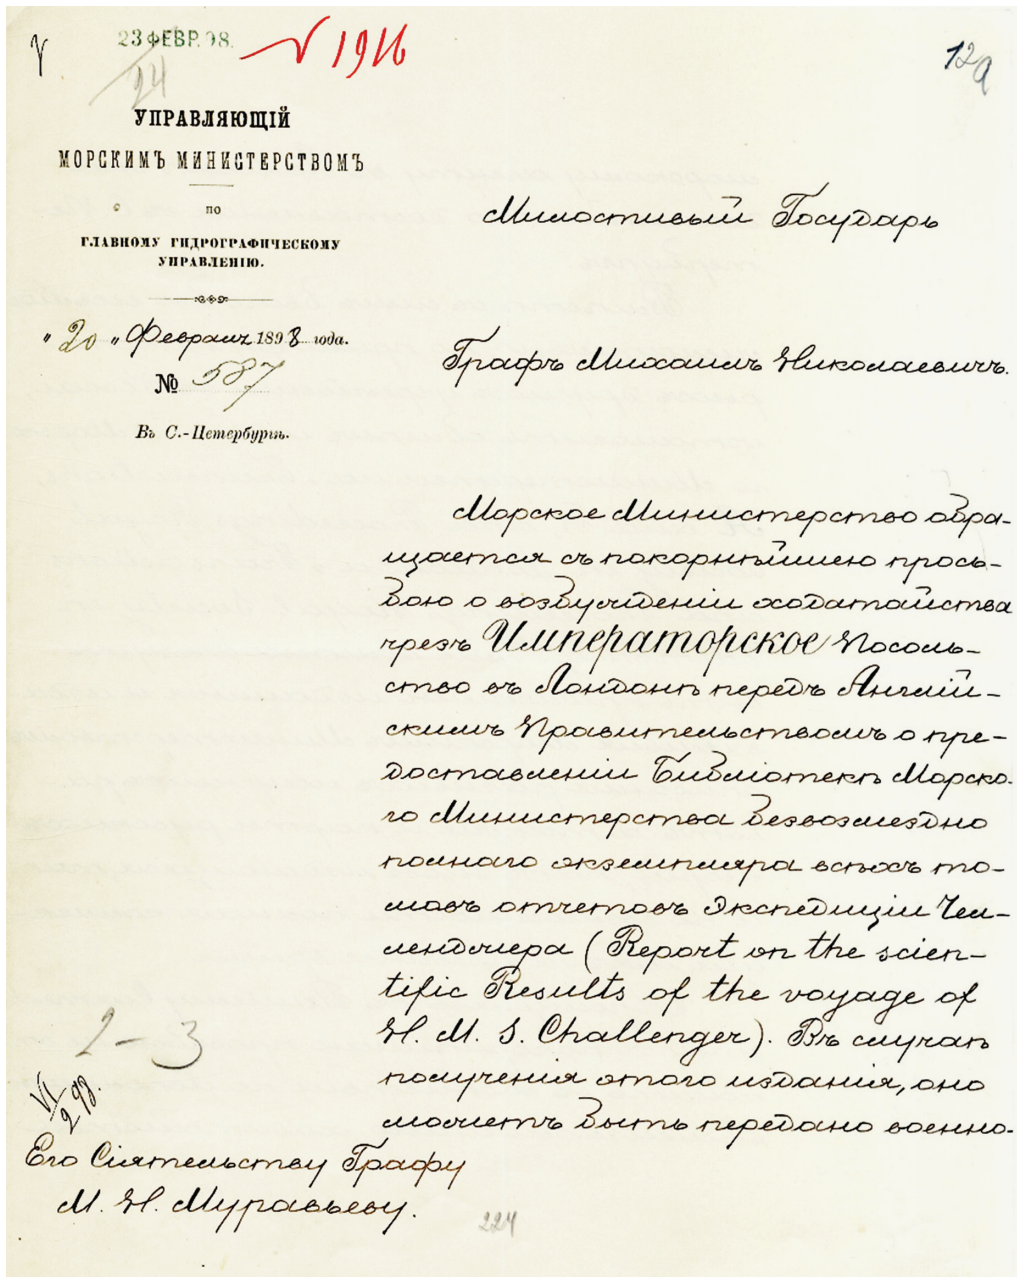 23 ФЕВР. 98.
№ 1916
12а
24
УПРАВЛЯЮЩІЙ
МОРСКИМЪ МИНИСТЕРСТВОМЪ
ПО
ГЛАВНОМУ ГИДРОГРАФИЧЕСКОМУ
УПРАВЛЕНІЮ.
„20„ Февраля 1898 года.
№ 587
Въ С.-Петербургѣ.
Милостивый Государь
Графъ Михаилъ Николаевичъ.
Морское Министерство обра-
щается съ покорнѣйшею прось-
бою о возбужденіи ходатайства
чрезъ Императорское Посоль-
ство въ Лондонѣ передъ Англій-
скимъ Правительствомъ о пре-
доставленіи Библіотекѣ Морско-
го Министерства безвозмездно
полнаго экземпляра всѣхъ то-
мовъ отчетовъ Экспедиціи Чел-
ленджера (Report on the scien-
tific Results of the voyage of
H. M. S. Challenger). Въ случаѣ
полученія этого изданія, оно
можетъ быть передано военно-
2-3
VI/2 98.
Его Сіятельству Графу
М. Н. Муравьеву.
224